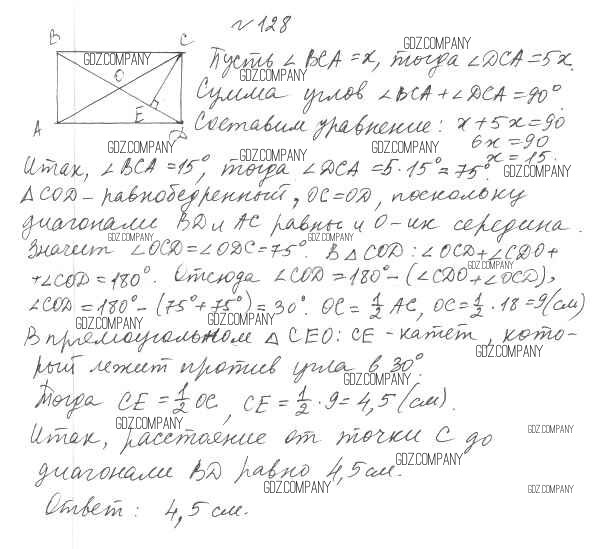 №128
B C
GDZ.COMPANY GDZ.COMPANY
Пусть ∠BCA = x, тогда ∠DCA = 5x.
O GDZ.COMPANY
Сумма углов ∠BCA + ∠DCA = 90°.
E
A D
Составим уравнение: x + 5x = 90
6x = 90
GDZ.COMPANY GDZ.COMPANY GDZ.COMPANY
x = 15.
Итак, ∠BCA = 15°, тогда ∠DCA = 5·15° = 75°. GDZ.COMPANY
△COD – равнобедренный, OC = OD, поскольку
диагонали BD и AC равны и O – их середина.
GDZ.COMPANY GDZ.COMPANY GDZ.COMPANY
Значит ∠OCD = ∠ODC = 75°. В △COD: ∠OCD + ∠CDO +
GDZ.COMPANY
+ ∠COD = 180°. Отсюда ∠COD = 180° – (∠CDO + ∠OCD),
∠COD = 180° – (75° + 75°) = 30°. OC = 1/2 AC, OC = 1/2 · 18 = 9 (см)
GDZ.COMPANY GDZ.COMPANY
В прямоугольном △CEO: CE – катет, кото-
GDZ.COMPANY
рый лежит против угла в 30°.
GDZ.COMPANY
Тогда CE = 1/2 OC, CE = 1/2 · 9 = 4,5 (см).
GDZ.COMPANY
Итак, расстояние от точки C до GDZ.COMPANY
GDZ.COMPANY
диагонали BD равно 4,5 см.
GDZ.COMPANY GDZ.COMPANY
Ответ: 4,5 см.